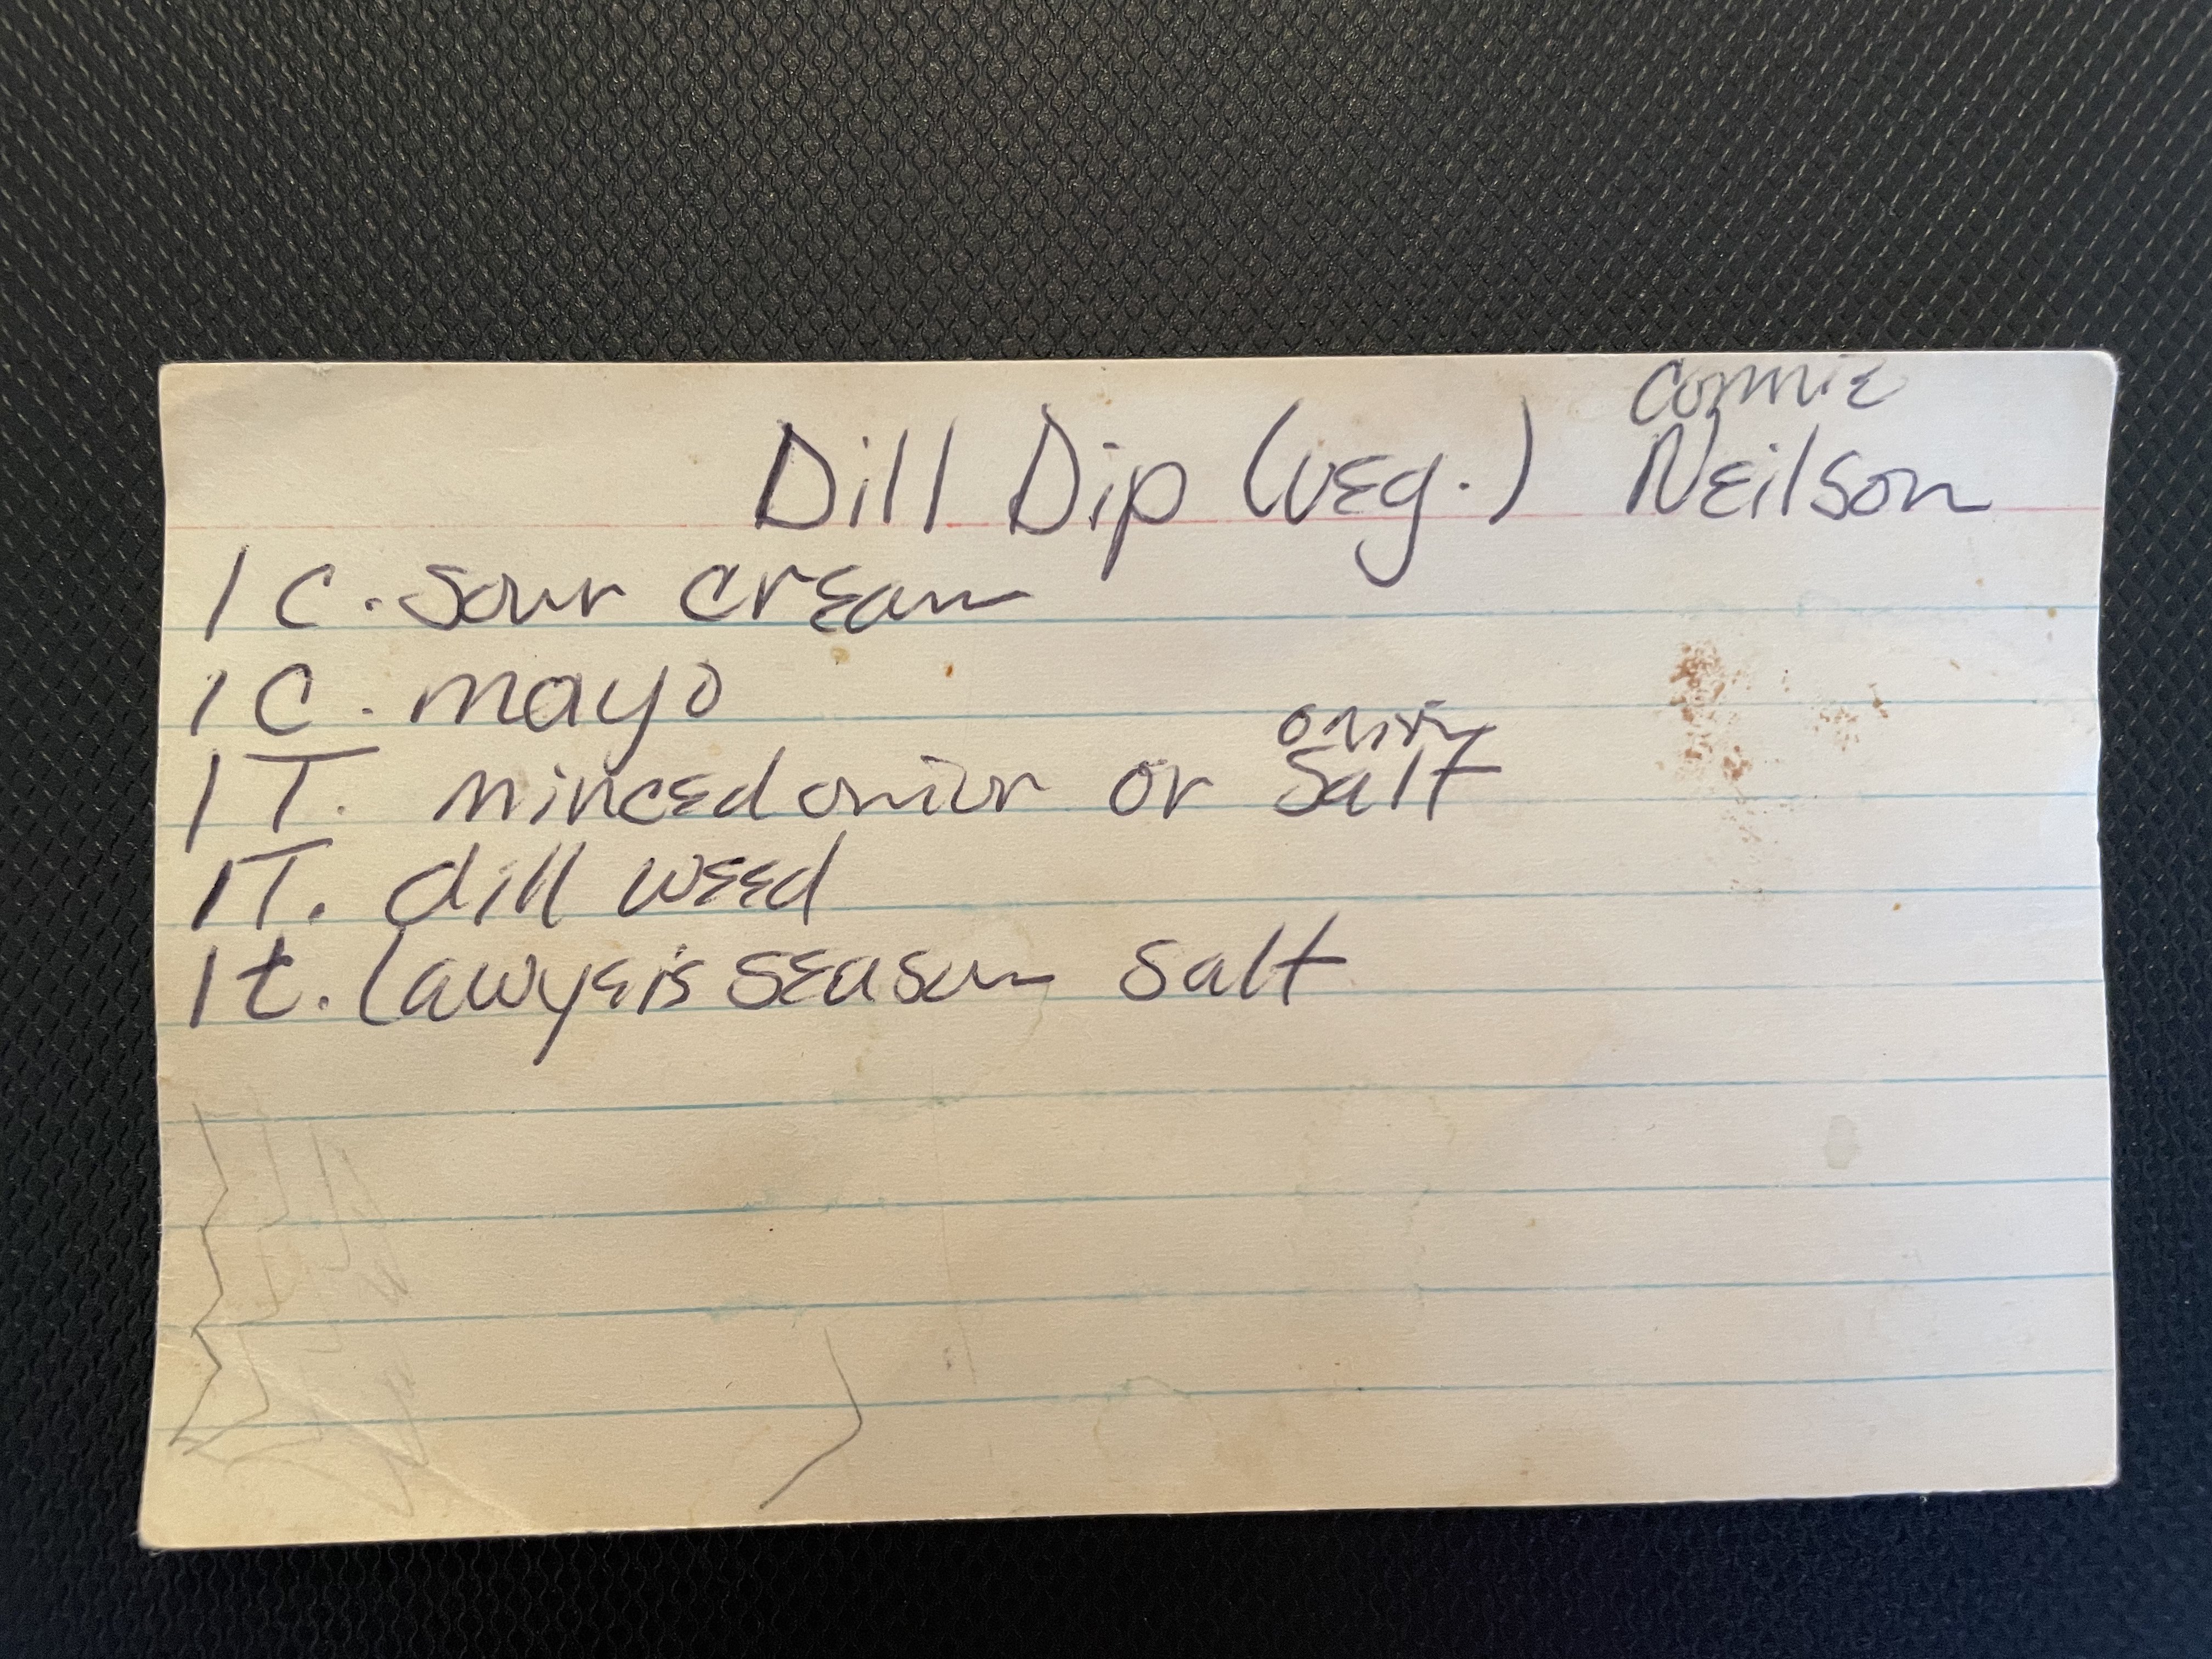 Connie
Dill Dip (veg.) Neilson
1 C. sour cream
1 C. mayo
onion
1 T. minced onion or salt
1T. dill weed
1t. Lawyeis season salt